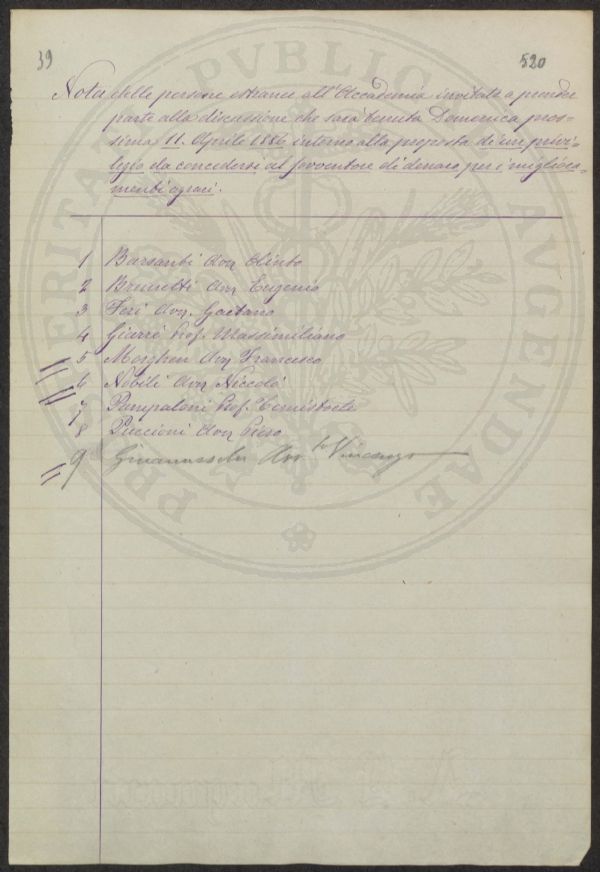 39
520
Nota delle persone estranee all'Accademia invitate a prender
parte alla discussione che sarà tenuta Domenica pros-
sima 11. Aprile 1886 intorno alla proposta di un privi-
legio da concedersi al sovventore di denaro per i migliora-
menti agrari.
1 Barsanti Avv. Olinto
2 Brunetti Avv. Eugenio
3 Feri Avv. Gaetano
4 Giarrè Prof. Massimiliano
5 Morghen Avv. Francesco
6 Nobili Avv. Niccolò
7 Pampaloni Prof. Temistocle
8 Puccioni Avv. Piero
9 Avv.to Vincenzo
PROSPERITATI PVBLICAE AVGENDAE